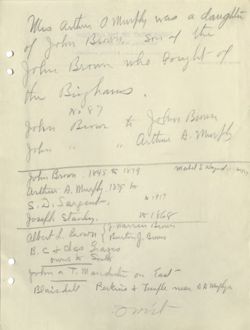 Mrs Arthur A Murphy was a daughter
of John Brown, Son of the
John Brown who bought of
the Binghams.
No 87
John Brown to John Brown
John " " Arthur A. Murphy
John Brown 1845 to 1879
Arthur A. Murphy 1879 to
S. D. Sargent, to 1917
Joseph Stanley, to 1868
Albert S. Brown
Warren Brown
Burton J. Brown
B. C & Glas
owns to South
John & T. on East
Blaisdell Perkins & Temple near A A Murphy
omit